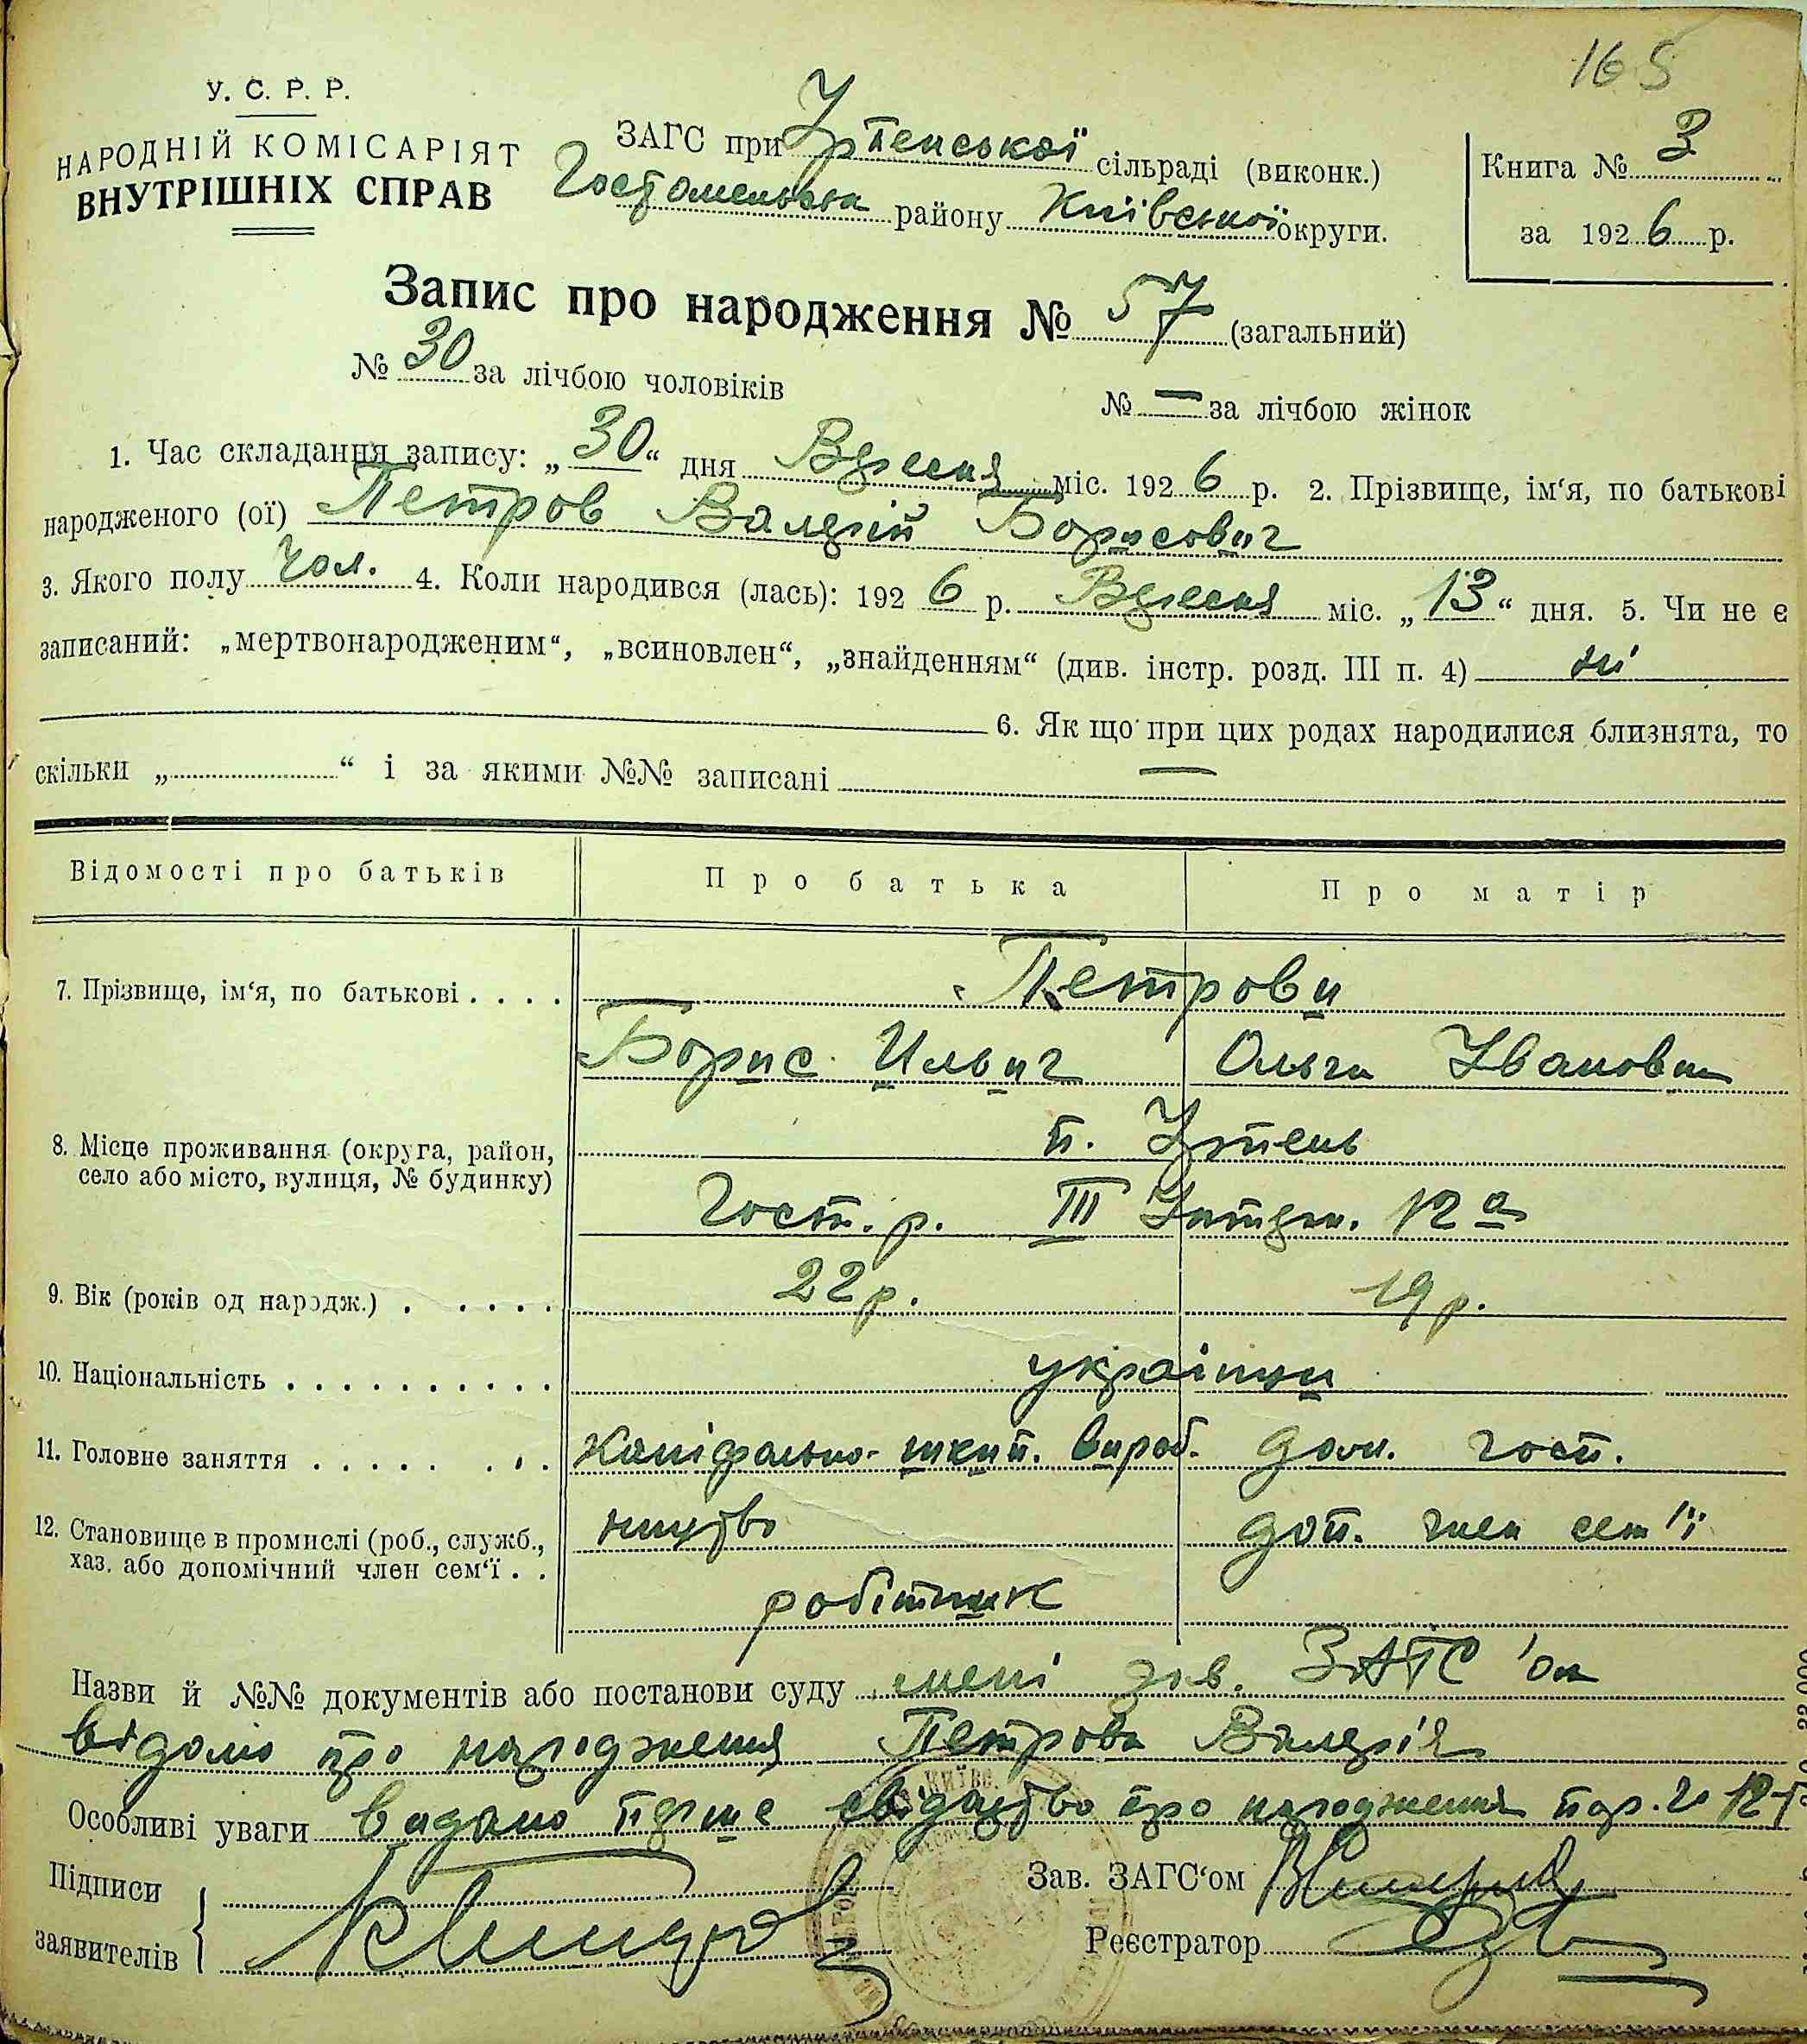 165
У. С. Р. Р.
НАРОДНІЙ КОМІСАРІЯТ
ВНУТРІШНІХ СПРАВ
ЗАГС при Ірпенської сільраді (виконк.)
Гостомельськ району Київської округи.
Книга № 3
за 1926 р.
Запис про народження № 57 (загальний)
№ 30 за лічбою чоловіків
№ — за лічбою жінок
1. Час складання запису: „30“ дня Вересня міс. 1926 р. 2. Прізвище, ім‘я, по батькові
народженого (ої) Петров Валерій Борисович
3. Якого полу чол. 4. Коли народився (лась): 1926 р. Вересня міс. „13“ дня. 5. Чи не є
записаний: „мертвонародженим“, „всиновлен“, „знайденням“ (див. інстр. розд. III п. 4) ні
6. Як що при цих родах народилися близнята, то
скільки „ “ і за якими №№ записані —
Відомості про батьків Про батька Про матір
7. Прізвище, ім‘я, по батькові . . . . Петрови
Борис Ильич Ольга Івановна
8. Місце проживання (округа, район,
село або місто, вулиця, № будинку)
п. Ірпень
Гост. р. III 12 а
9. Вік (років од народж.) . . . . . 22 р. 19 р.
10. Національність . . . . . . . . . . українци
11. Головне заняття . . . . . . . . каніфольно-скип. вироб- дом. госп.
12. Становище в промислі (роб., служб.,
хаз. або допомічний член сем‘ї . .
ництво доп. член сем'ї
робітник
Назви й №№ документів або постанови суду мені зав. ЗАГС'ом
відомо про народження Петрова Валерія
Особливі уваги видано перше свідоцтво про народження
Підписи
заявителів
Зав. ЗАГС‘ом
Реєстратор